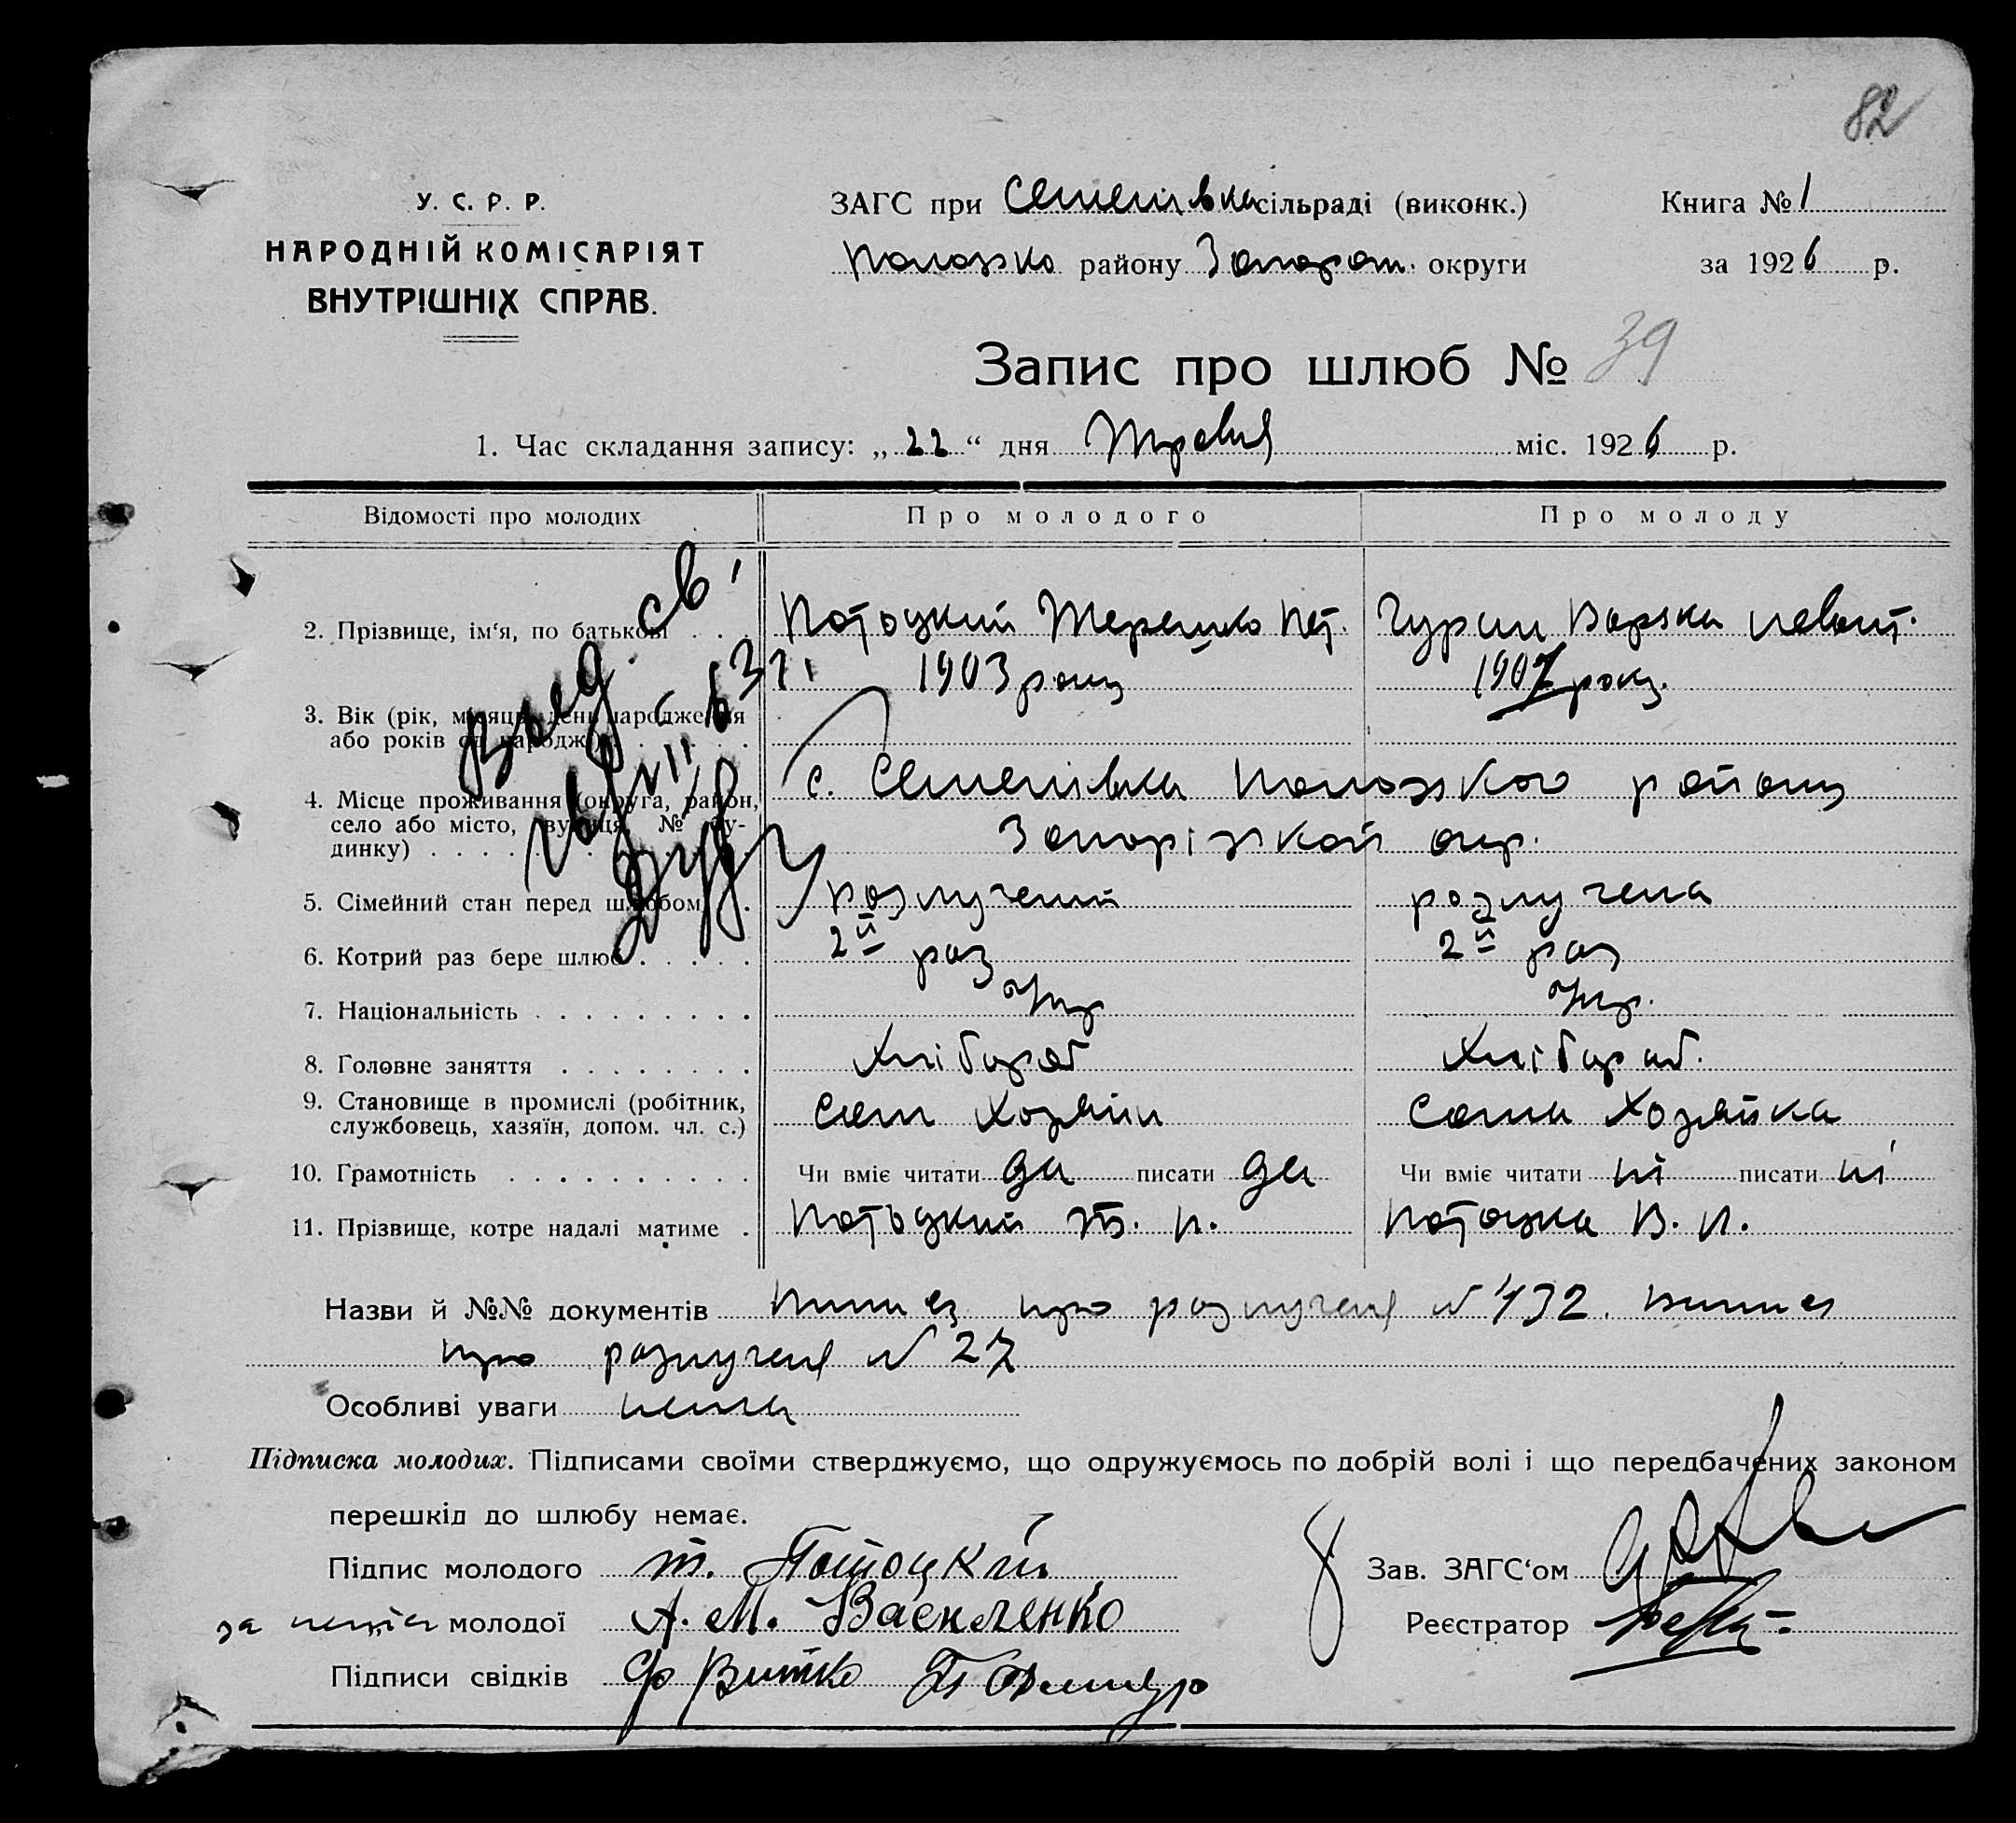 82
У. С. Р. Р.
НАРОДНІЙ КОМІСАРІЯТ
ВНУТРІШНІХ СПРАВ.
ЗАГС при Семенівка сільраді (виконк.)
Положко району Запорож. округи
Книга № 1
за 1926 р.
Запис про шлюб № 39
1. Час складання запису: „22“ дня Травня міс. 1926 р.
Відомості про молодих Про молодого Про молоду
2. Прізвище, ім‘я, по батькові . . . Потоцкий Терешко Пет. Гурин Варвка
3. Вік (рік, місяць, день народження або років од народж.) 1903 року 1907 року.
4. Місце проживання (округа, район, село або місто, вулиця, № бу-
динку) . . . с. Семенівка Положского району
Запоріжкой окр.
5. Сімейний стан перед шлюбом . . розлучений розлучена
6. Котрий раз бере шлюб . . . . . 2й раз 2й раз
7. Національність . . . . . . . . . Укр Укр.
8. Головне заняття . . . . . . . . Хлібороб Хлібороб.
9. Становище в промислі (робітник,
службовець, хазяїн, допом. чл. с.) Сам Хозяин Сама Хозяйка
10. Грамотність . . . . . . . . . . Чи вміє читати да писати да Чи вміє читати ні писати ні
11. Прізвище, котре надалі матиме . Потоцкий Т. П. Потоцка В. П.
Назви й №№ документів Випис про розлученя № 132. випис
про розлученя № 27
Особливі уваги нема
Підписка молодих. Підписами своїми стверджуємо, що одружуємось по добрій волі і що передбачених законом
перешкід до шлюбу немає.
Підпис молодого Т. Потоцкий
Зав. ЗАГС‘ом
за молодої А. М. Василенко
Реєстратор
Підписи свідків Ф Витко